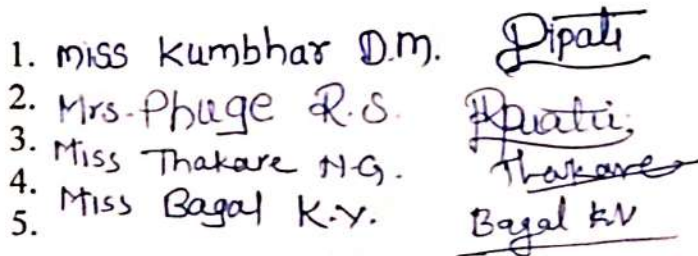 1. Miss Kumbhar D.M. Dipali
2. Mrs. Phuge R.S.
3. Miss Thakare N.G. Thakare
4. Miss Bagal K.Y. Bagal KV
5.